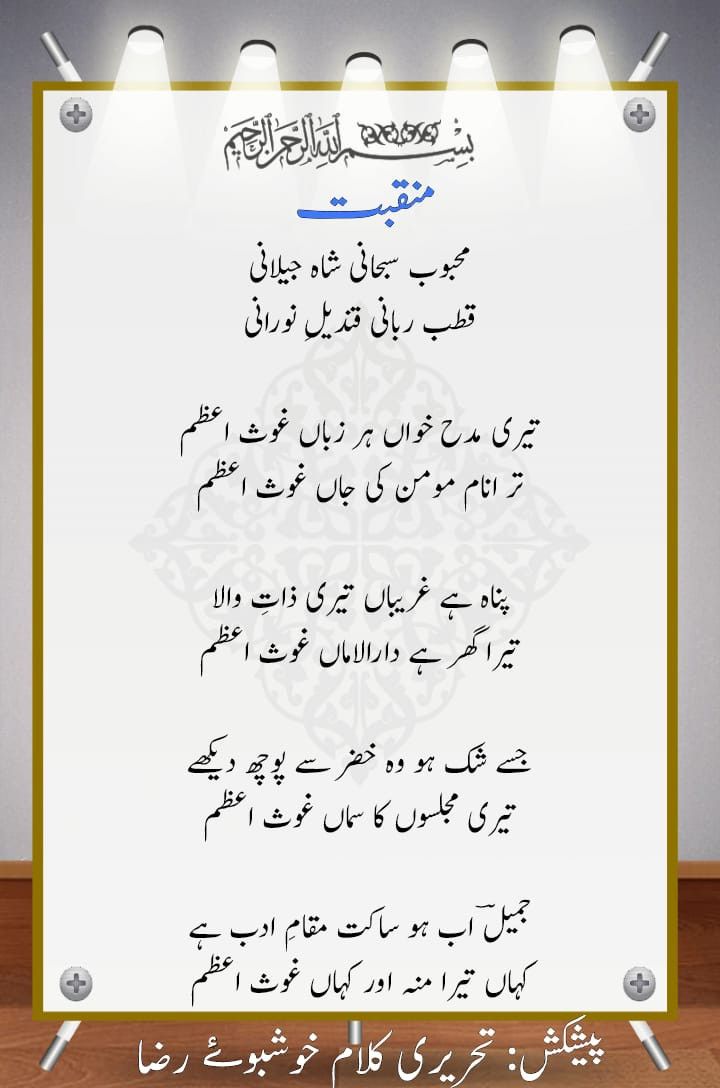 بِسْمِ اللهِ الرَّحْمٰنِ الرَّحِيْمِ
منقبت
محبوب سبحانی شاہ جیلانی
قطب ربانی قندیلِ نورانی
تیری مدح خواں ہر زباں غوث اعظم
تر انام مومن کی جاں غوث اعظم
پناہ ہے غریباں تیری ذاتِ والا
تیرا گھر ہے دارالاماں غوث اعظم
جسے شک ہو وہ خضر سے پوچھ دیکھے
تیری مجلسوں کا سماں غوث اعظم
جمیلؔ اب ہو ساکت مقامِ ادب ہے
کہاں تیرا منہ اور کہاں غوث اعظم
پیشکش: تحریری کلام خوشبوئے رضا